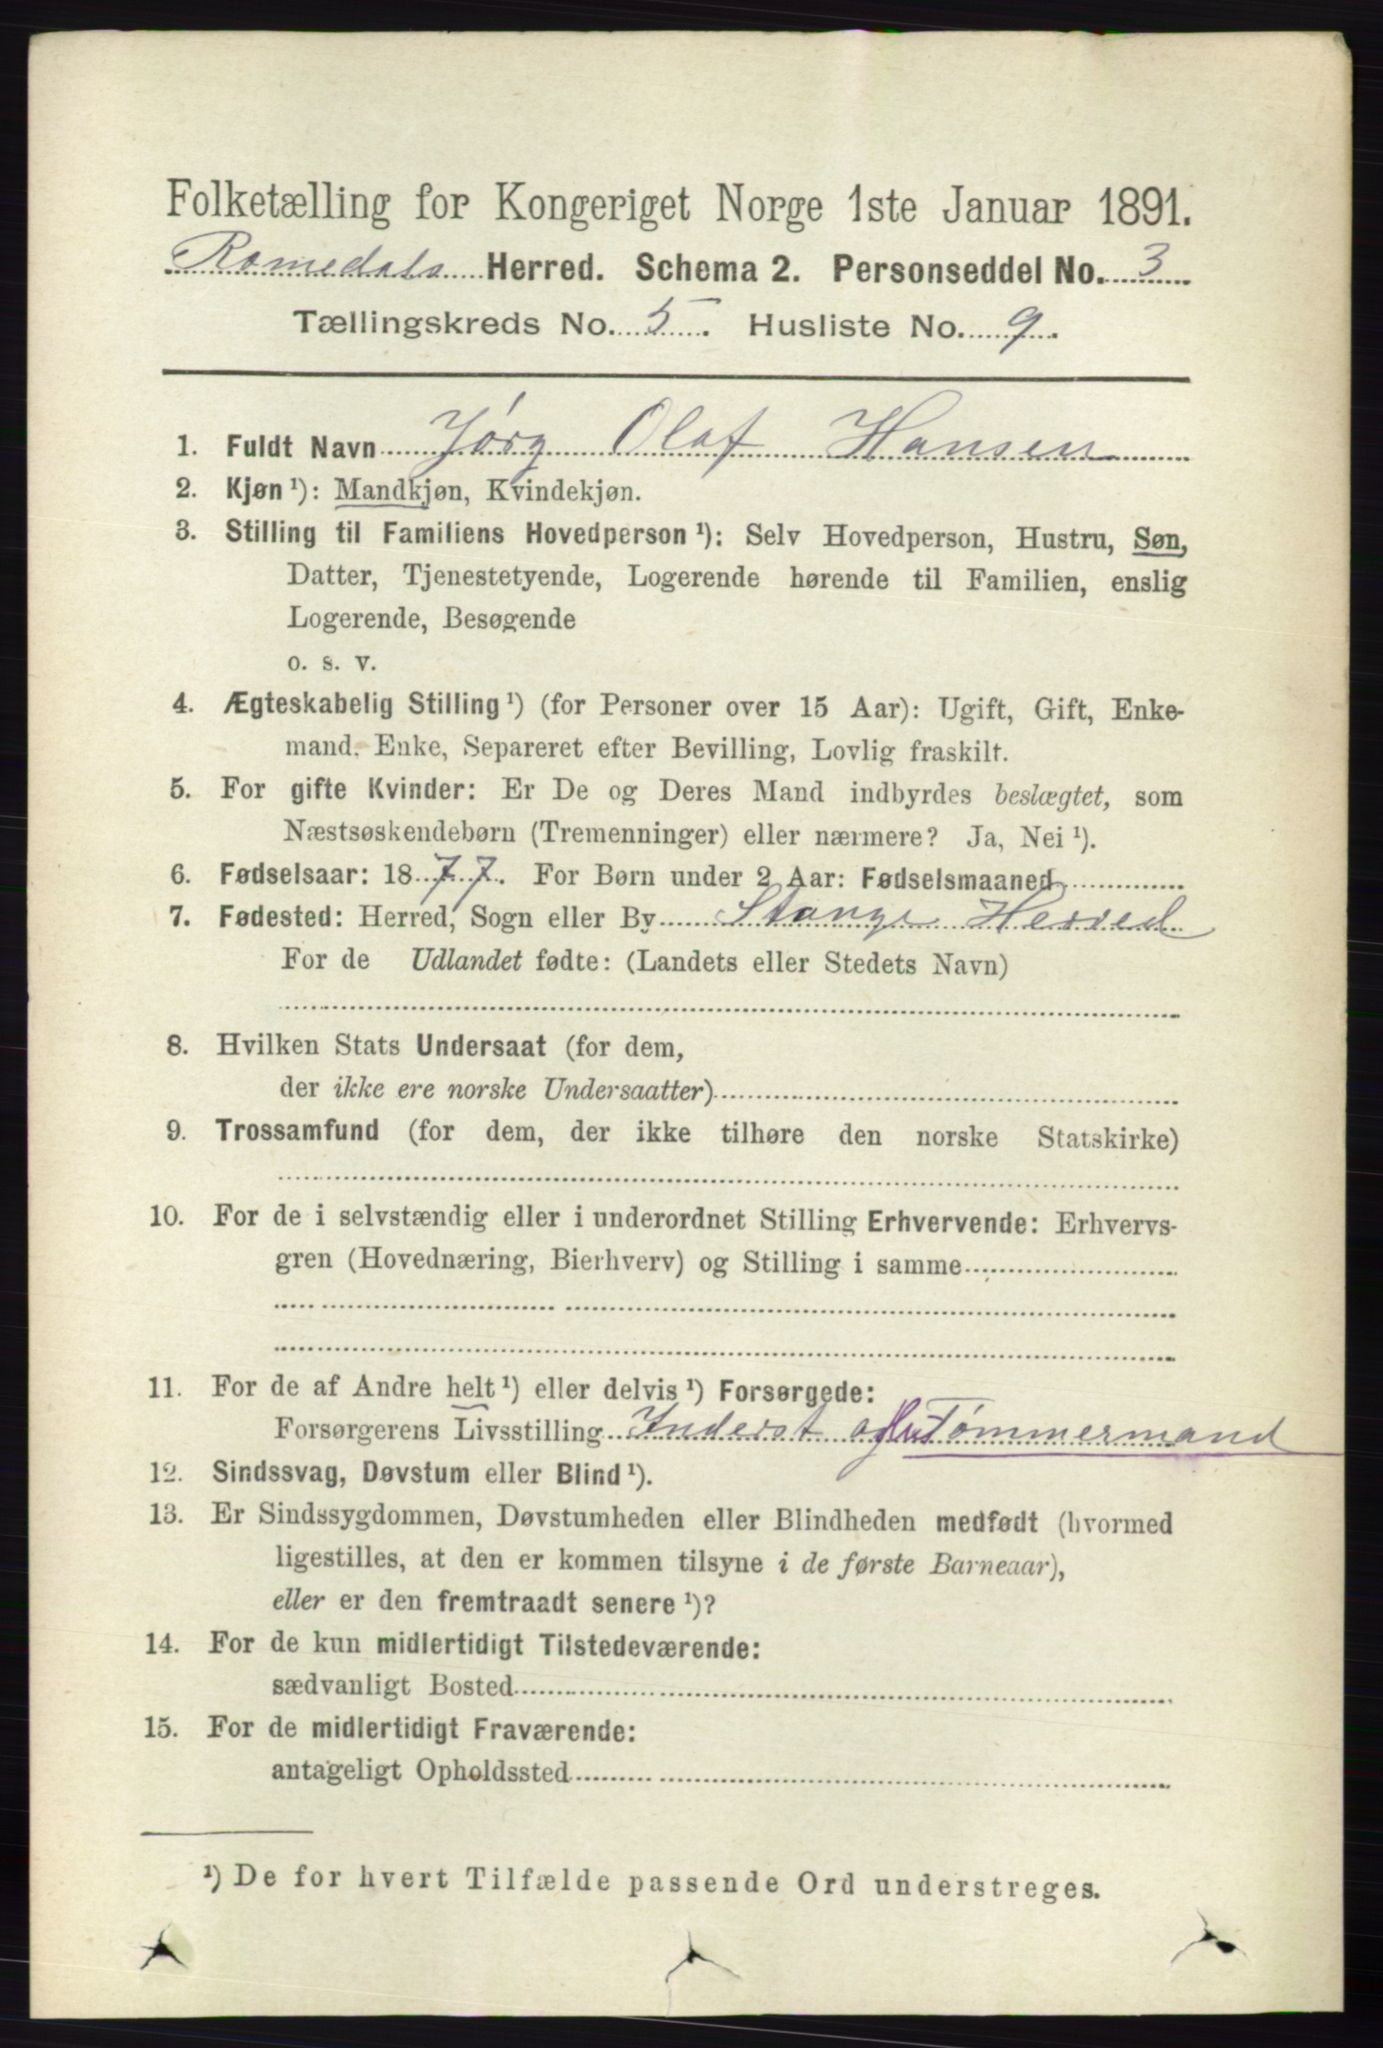 Folketælling for Kongeriget Norge 1ste Januar 1891.
Romedals Herred. Schema 2. Personseddel No. 3
Tællingskreds No. 5. Husliste No. 9.
1. Fuldt Navn Jørg Olaf Hansen
2. Kjøn ¹): Mandkjøn, Kvindekjøn.
3. Stilling til Familiens Hovedperson ¹): Selv Hovedperson, Hustru, Søn,
Datter, Tjenestetyende, Logerende hørende til Familien, enslig
Logerende, Besøgende
o. s. v.
4. Ægteskabelig Stilling ¹) (for Personer over 15 Aar): Ugift, Gift, Enke-
mand, Enke, Separeret efter Bevilling, Lovlig fraskilt.
5. For gifte Kvinder: Er De og Deres Mand indbyrdes beslægtet, som
Næstsøskendebørn (Tremenninger) eller nærmere? Ja, Nei ¹).
6. Fødselsaar: 1877. For Børn under 2 Aar: Fødselsmaaned
7. Fødested: Herred, Sogn eller By Stange Herred
For de Udlandet fødte: (Landets eller Stedets Navn)
8. Hvilken Stats Undersaat (for dem,
der ikke ere norske Undersaatter)
9. Trossamfund (for dem, der ikke tilhøre den norske Statskirke)
10. For de i selvstændig eller i underordnet Stilling Erhvervende: Erhvervs-
gren (Hovednæring, Bierhverv) og Stilling i samme
11. For de af Andre helt ¹) eller delvis ¹) Forsørgede:
Forsørgerens Livsstilling Inderst og Tømmermand
12. Sindssvag, Døvstum eller Blind ¹).
13. Er Sindssygdommen, Døvstumheden eller Blindheden medfødt (hvormed
ligestilles, at den er kommen tilsyne i de første Barneaar),
eller er den fremtraadt senere ¹)?
14. For de kun midlertidigt Tilstedeværende:
sædvanligt Bosted
15. For de midlertidigt Fraværende:
antageligt Opholdssted
¹) De for hvert Tilfælde passende Ord understreges.